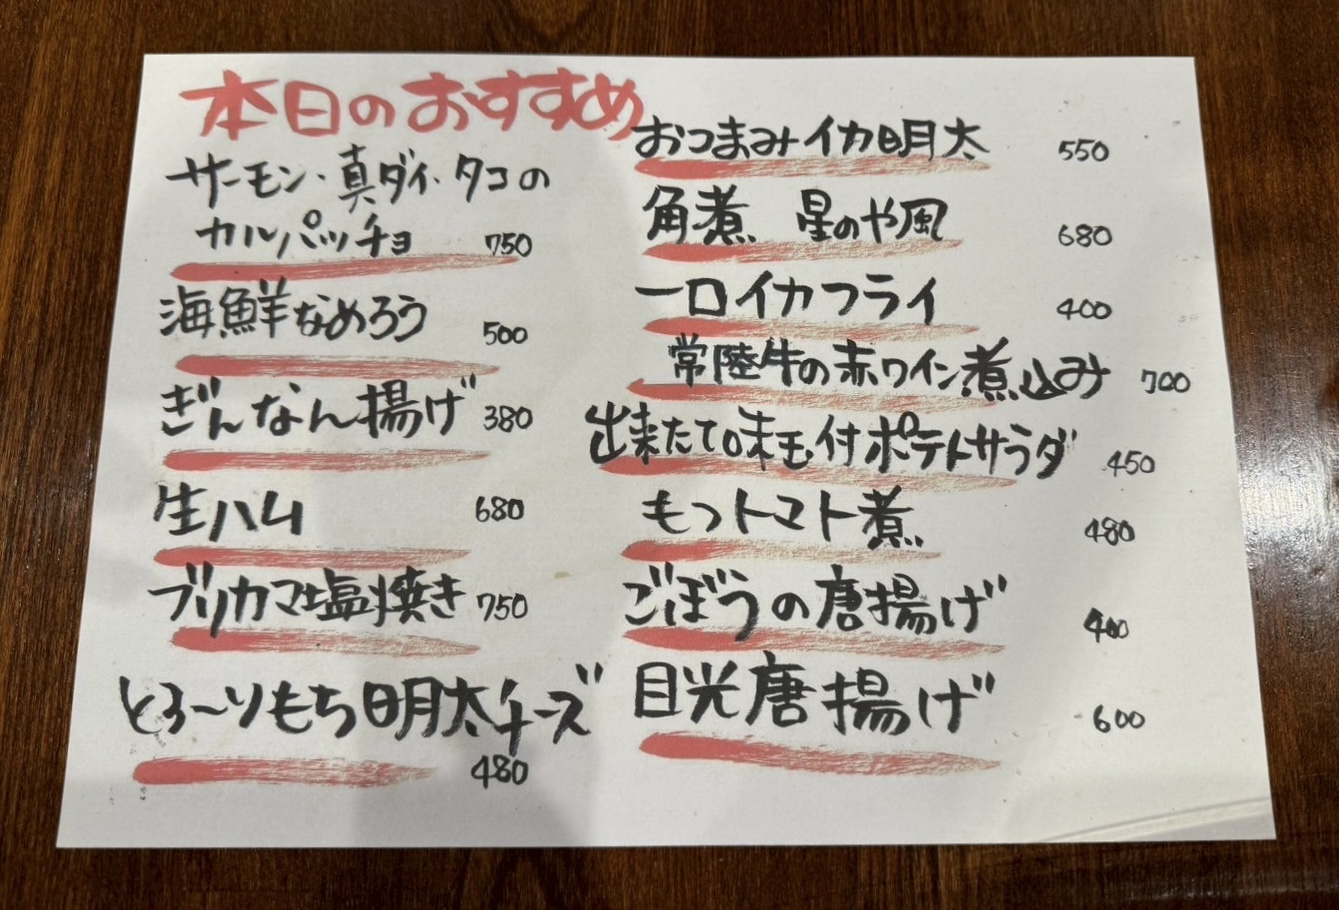 本日のおすすめ
サーモン・真ダイ・タコの
カルパッチョ 750
海鮮なめろう 500
ぎんなん揚げ 380
生ハム 680
ブリカマ塩焼き 750
とろ〜りもち明太チーズ
480
おつまみイカ明太 550
角煮 星のや風 680
一口イカフライ 400
常陸牛の赤ワイン煮込み 700
出来たて味玉付ポテトサラダ 450
もつトマト煮 480
ごぼうの唐揚げ 400
目光唐揚げ 600